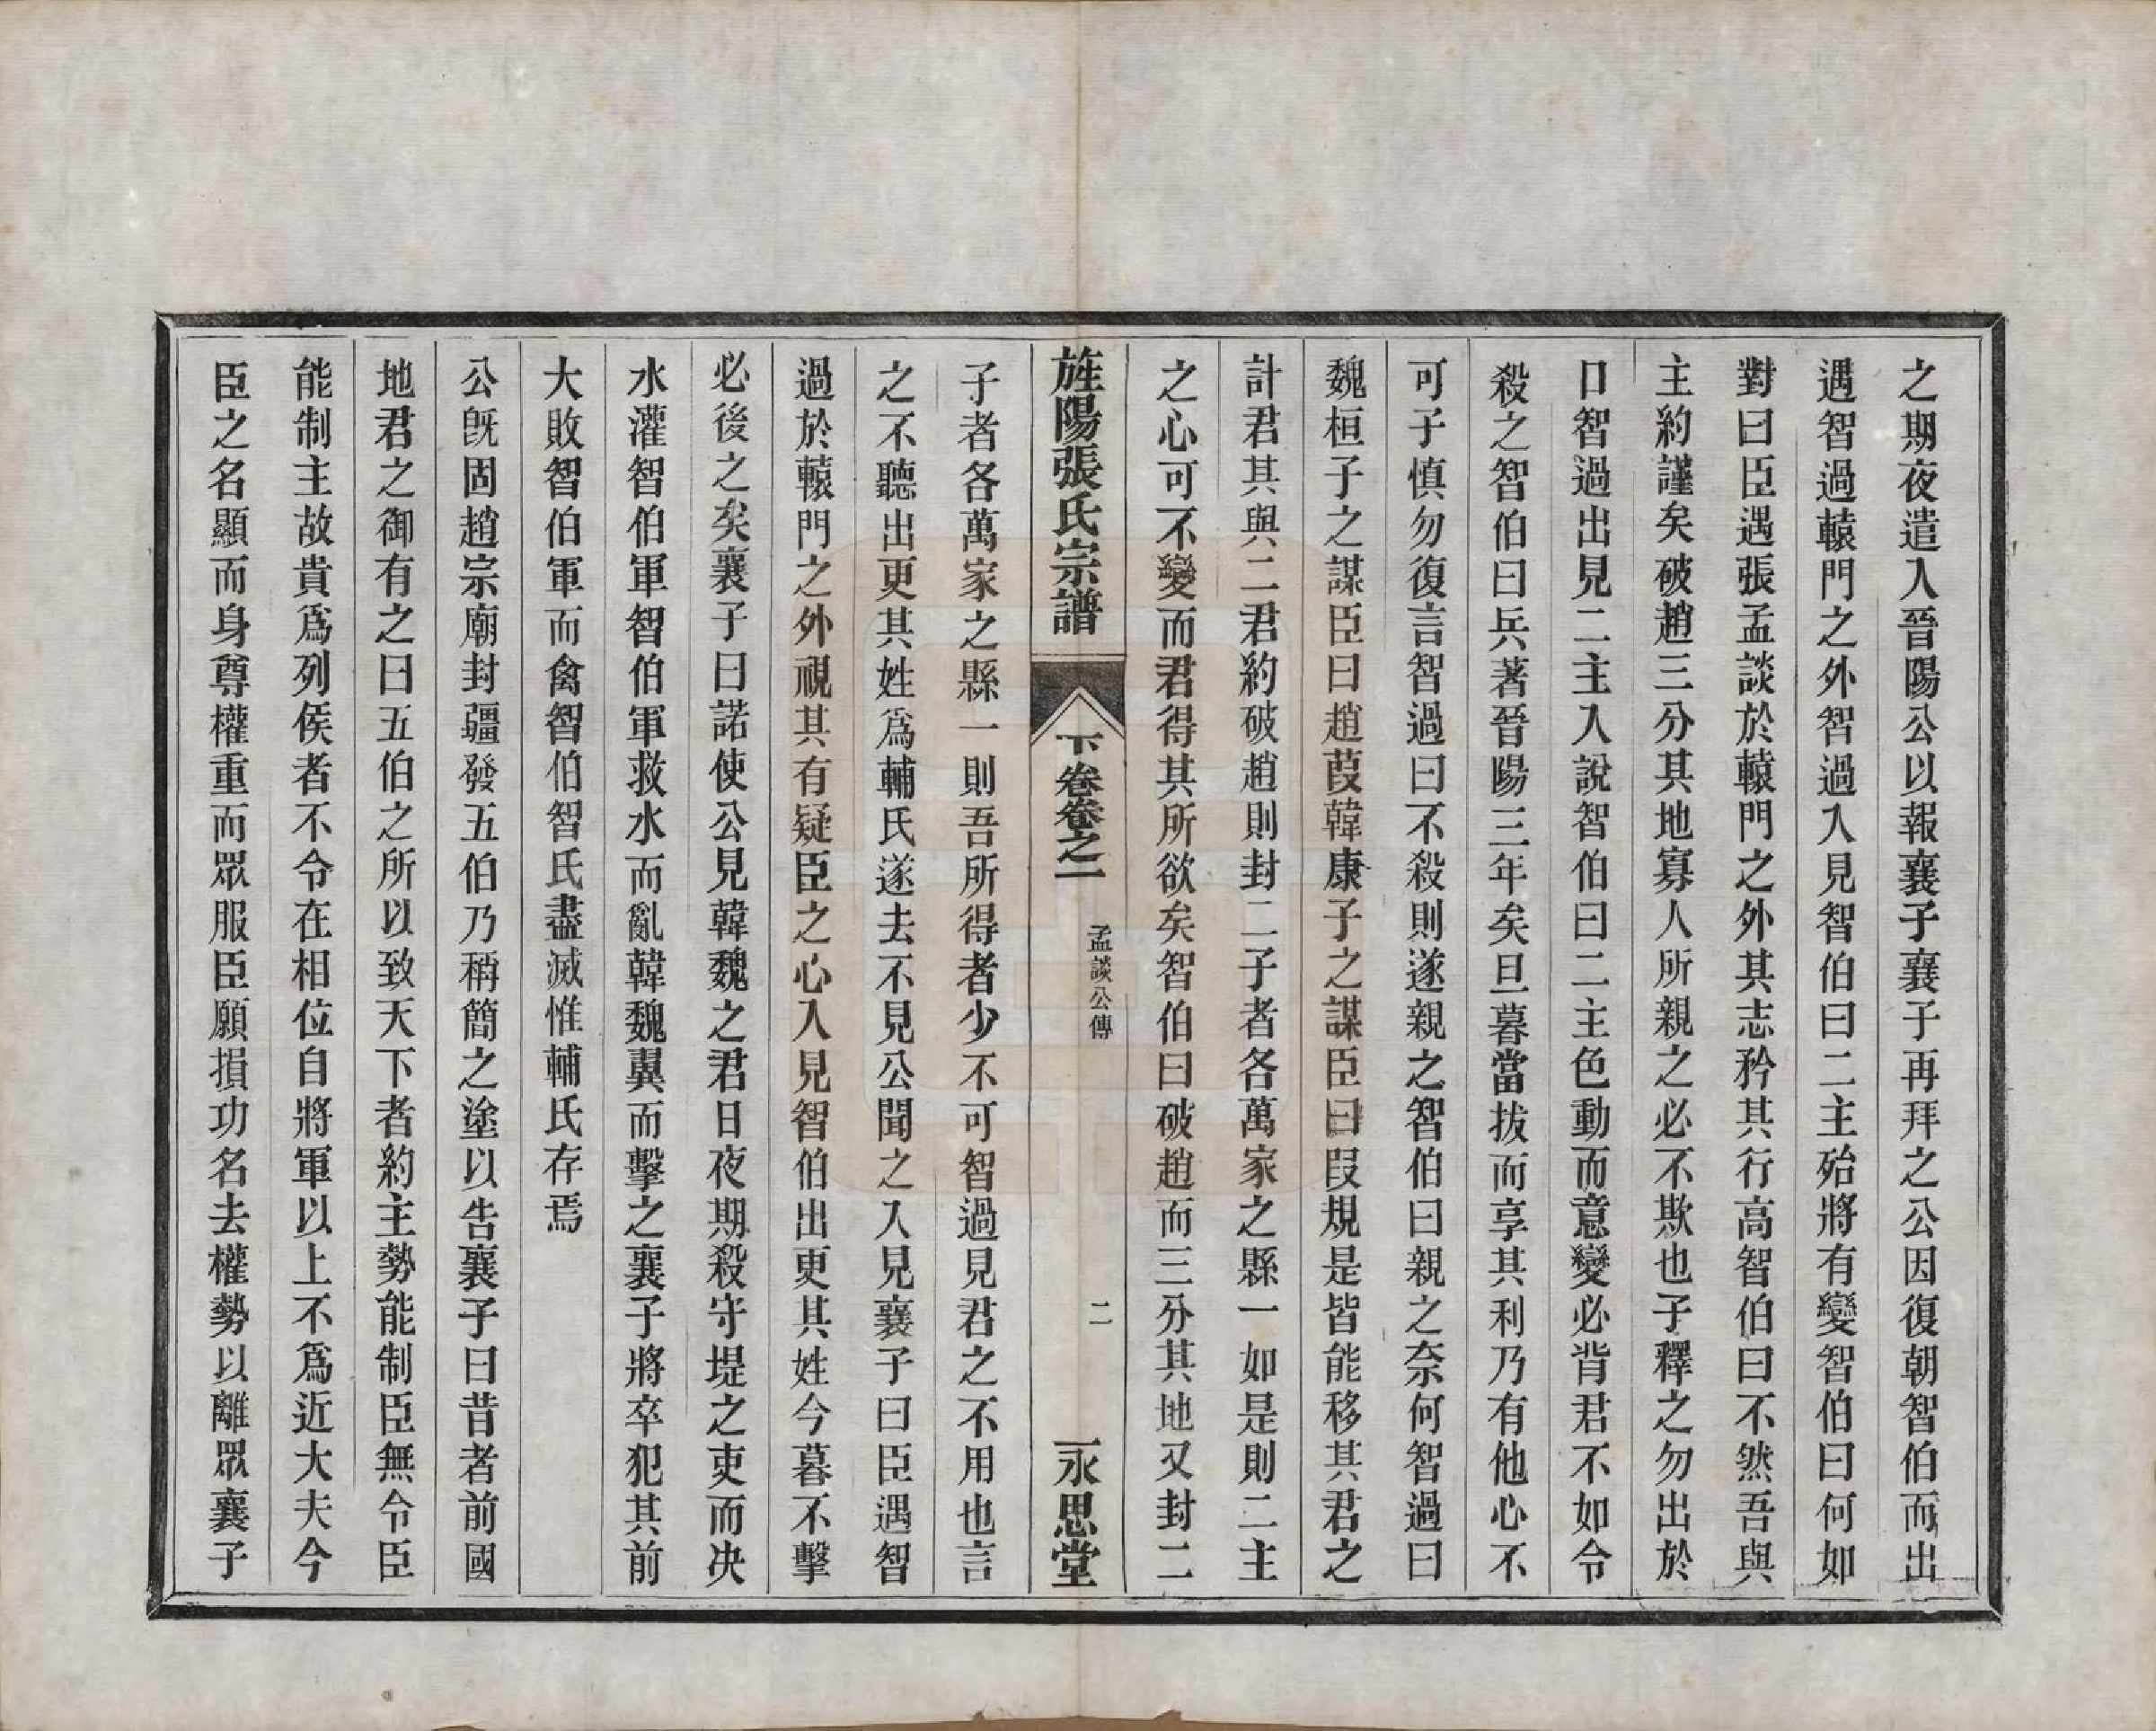 之期夜遣入晉陽公以報襄子襄子再拜之公因復朝智伯而出
遇智過轅門之外智過入見智伯曰二主殆將有變智伯曰何如
對曰臣遇張孟談於轅門之外其志矜其行高智伯曰不然吾與
主約謹矣破趙三分其地寡人所親之必不欺也子釋之勿出於
口智過出見二主入說智伯曰二主色動而意變必背君不如令
殺之智伯曰兵著晉陽三年矣旦暮當拔而享其利乃有他心不
可子慎勿復言智過曰不殺則遂親之智伯曰親之奈何智過曰
魏桓子之謀臣曰趙葭韓康子之謀臣曰段規是皆能移其君之
計君其與二君約破趙則封二子者各萬家之縣一如是則二主
之心可不變而君得其所欲矣智伯曰破趙而三分其地又封二
旌陽張氏宗譜
下卷卷之一
孟談公傳
二
永思堂
子者各萬家之縣一則吾所得者少不可智過見君之不用也言
之不聽出更其姓爲輔氏遂去不見公聞之入見襄子曰臣遇智
過於轅門之外視其有疑臣之心入見智伯出更其姓今暮不擊
必後之矣襄子曰諾使公見韓魏之君日夜期殺守堤之吏而決
水灌智伯軍智伯軍救水而亂韓魏翼而擊之襄子將卒犯其前
大敗智伯軍而禽智伯智氏盡滅惟輔氏存焉
公旣固趙宗廟封疆發五伯乃稱簡之塗以告襄子曰昔者前國
地君之御有之曰五伯之所以致天下者約主勢能制臣無令臣
能制主故貴爲列侯者不令在相位自將軍以上不爲近大夫今
臣之名顯而身尊權重而眾服臣願損功名去權勢以離眾襄子